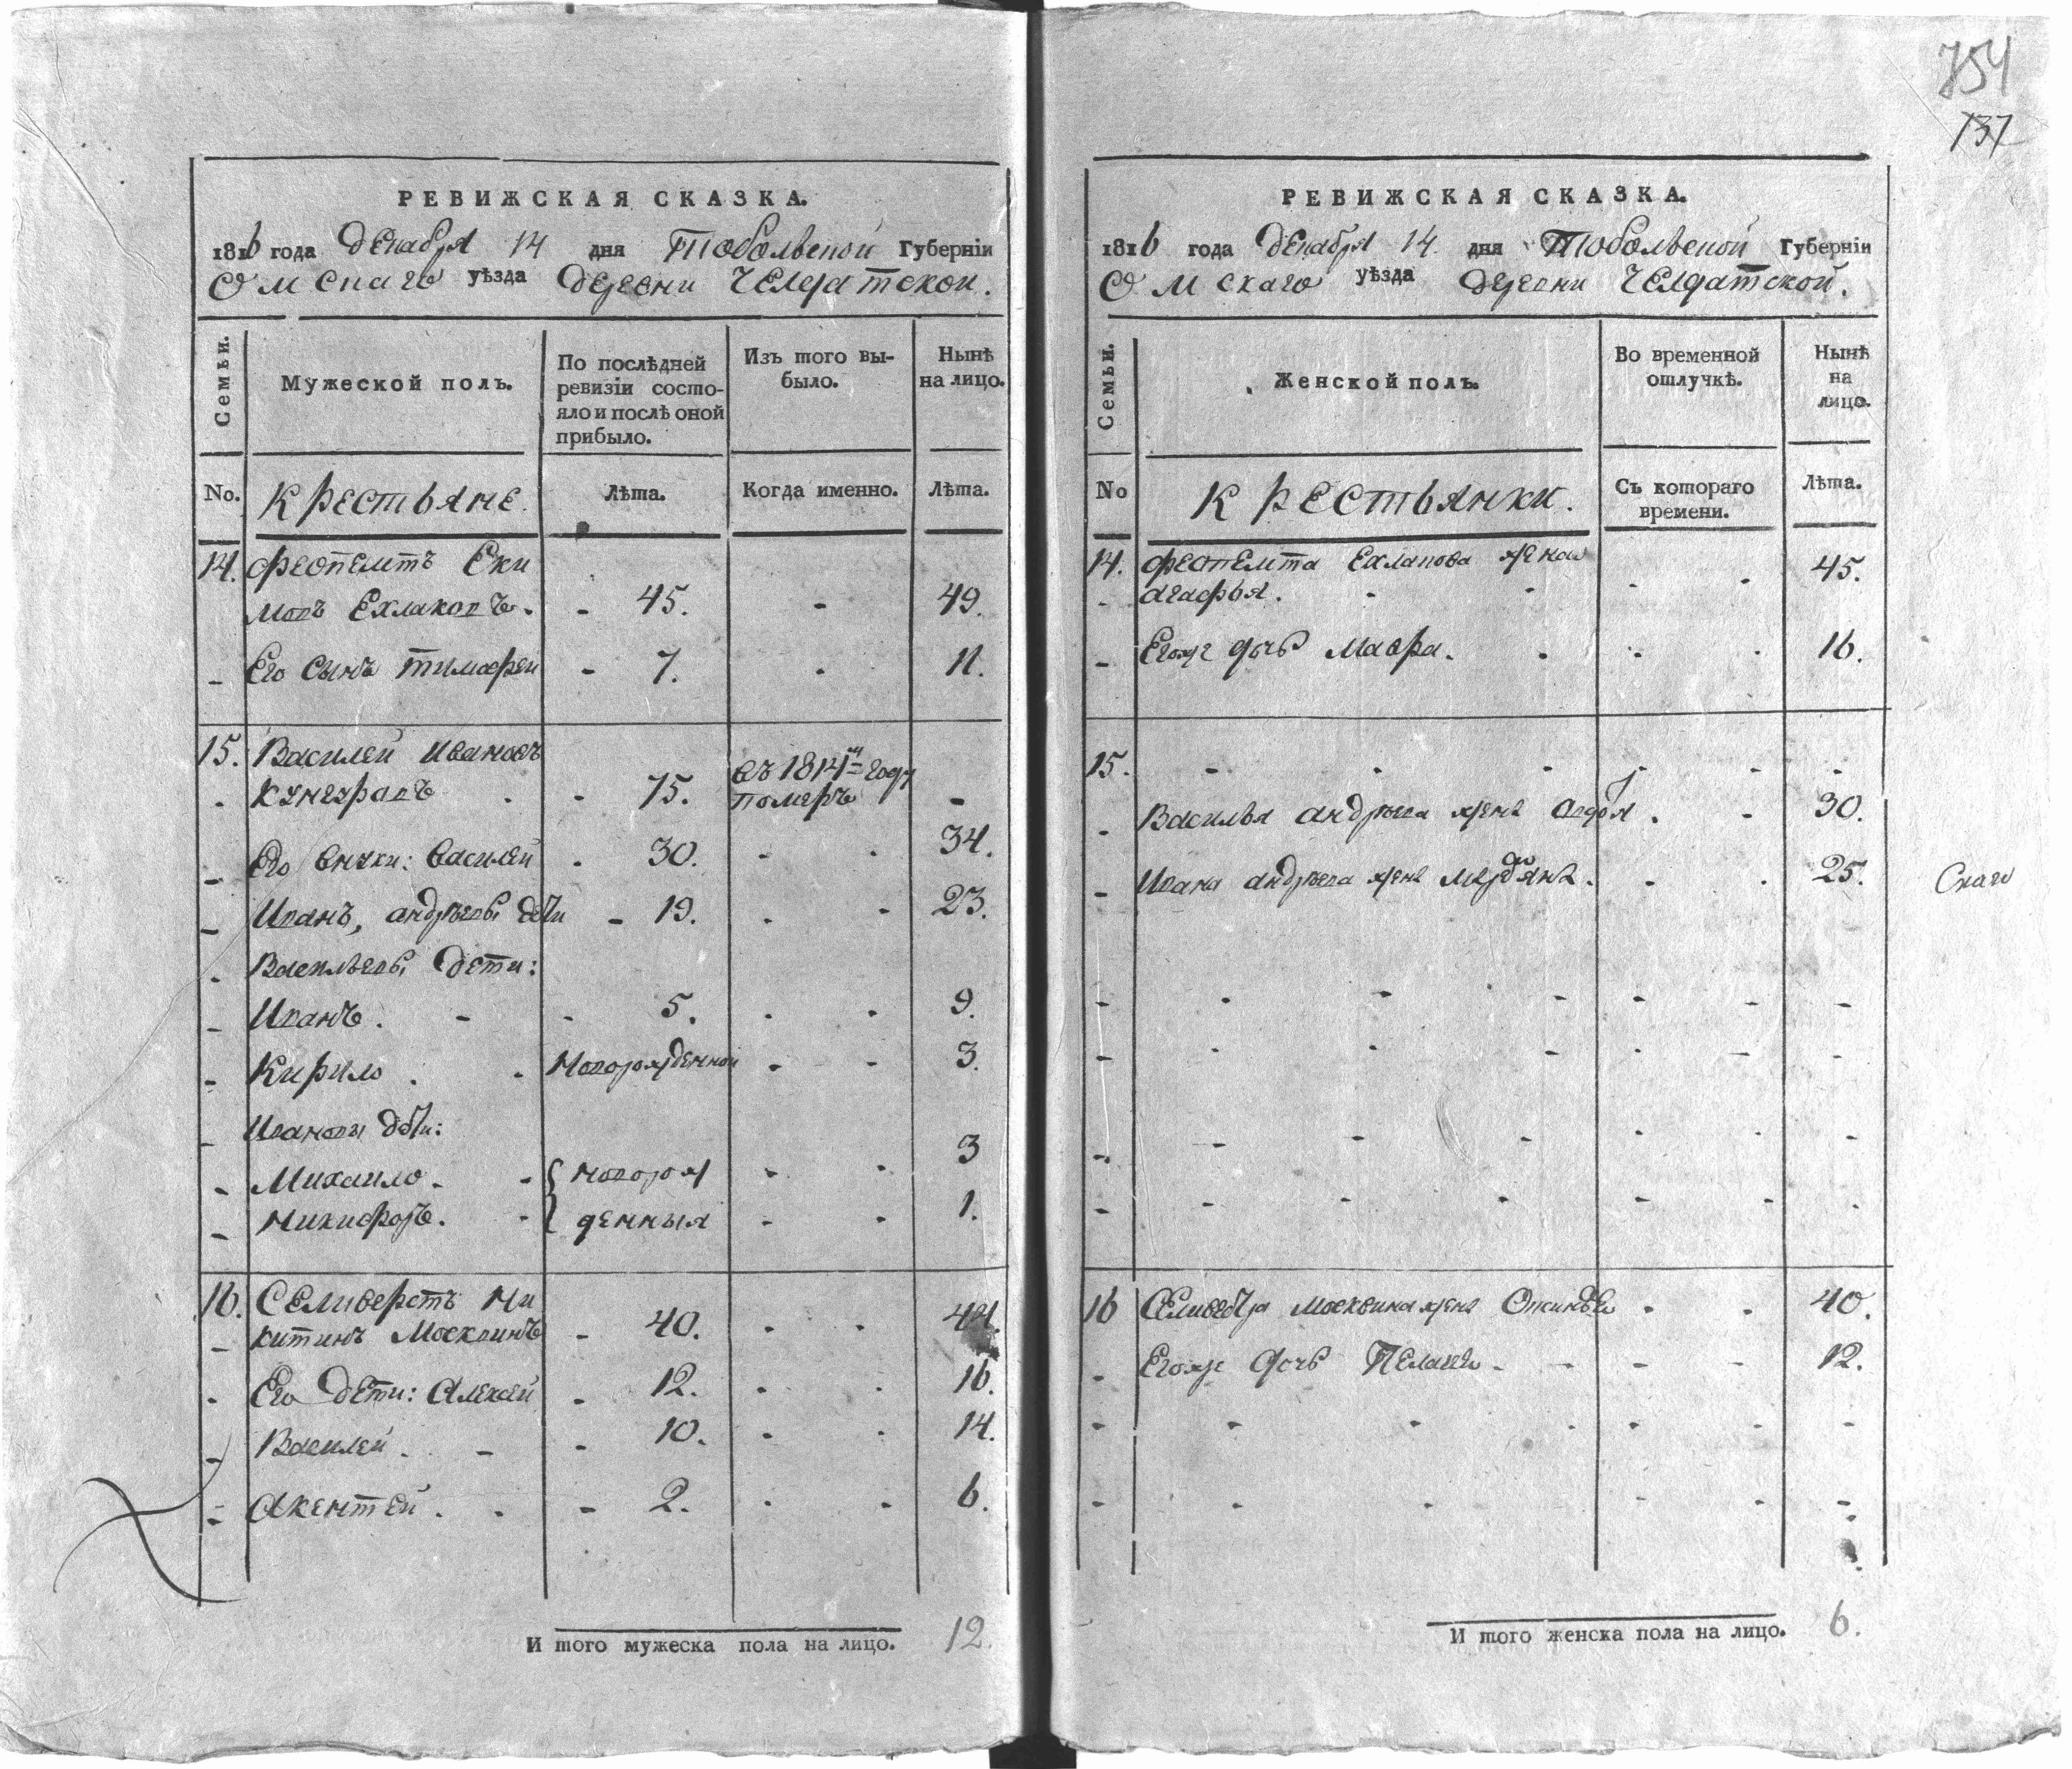 754
137
РЕВИЖСКАЯ СКАЗКА.
1816 года декабря 14 дня Тобольской Губерніи
Омскаго уѣзда деревни Челдатской.
Семьи.
Мужеской полъ.
По послѣдней ревизіи состояло и послѣ оной прибыло.
Изъ того выбыло.
Нынѣ на лицо.
No.
Крестьяне.
Лѣта.
Когда именно.
Лѣта.
14. Феопемтъ Еки
мовъ Ехлаковъ. - 45. - 49.
- Его сынъ Тимофей - 7. . 11.
15. Василей Ивановъ
. Кунгуравъ . - 75. въ 1814м году померъ -
- Его внуки: Василей . 30. - . 34.
- Иванъ, андрѣевы дѣти - 19. . - 23.
. Васильевы дети:
- Иванъ. - - 5. . . 9.
- Кирило . . Новорожденной - - 3.
- Ивановы дѣти:
- Михаило. - { новорож - . 3
- Никифоръ. . { денныя - - 1.
16. Селиверстъ Ни
- китинъ Москвинъ - 40. . . 44.
. Его дети: Алексей - 12. . . 16.
- Василей. - - 10. . . 14.
- Акентей. . - 2. . - 6.
И того мужеска пола на лицо. 12.
РЕВИЖСКАЯ СКАЗКА.
1816 года декабря 14. дня Тобольской Губерніи
Омскаго уѣзда деревни Челдатской.
Семьи.
Женской полъ.
Во временной отлучкѣ.
Нынѣ на лицо.
No
Крестьянки.
Съ котораго времени.
Лѣта.
14. Феопемта Ехлакова жена
- агафья. . - - . 45.
- Егоже дочь Мавра. . . . 16.
15. - - - - - -
- Василья андрѣева жена . - 30.
- Ивана андрѣева жена . . 25.
Скаго
16 Москвина жена . . 40.
. Егоже дочь Пелагея - - - - 12.
И того женска пола на лицо. 6.